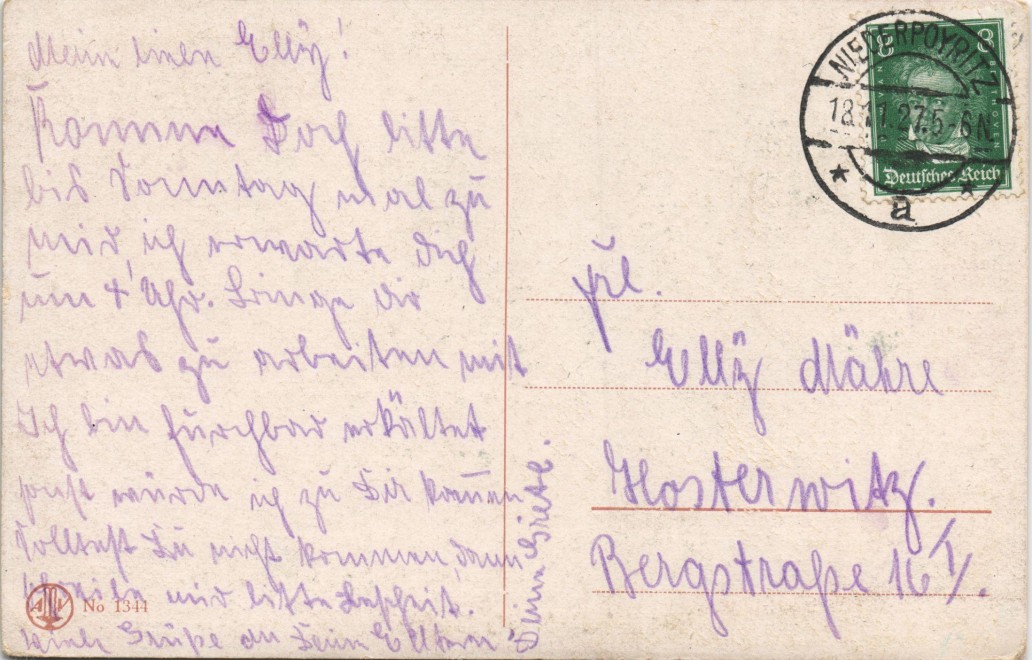 Mein lieben Elly!
Komme Doch bitte
bis Sonntag mal zu
mir, ich erwarte dich
um 4 Uhr. Bringe dir
etwas zu arbeiten mit
Ich bin furchbar erkältet
sonst würde ich zu Dir kommen
Solltest Du nicht kommen, dann
schreibe mir bitte Bescheid.
viele Grüße an Dein Elltern
Deine Grete.
NIEDERPOYRITZ
18.11.27.5-6N.
a
8 8
Deutsches Reich
Frl.
Elly Mähre
Hosterwitz.
Bergstraße 16 I/.
No 1344